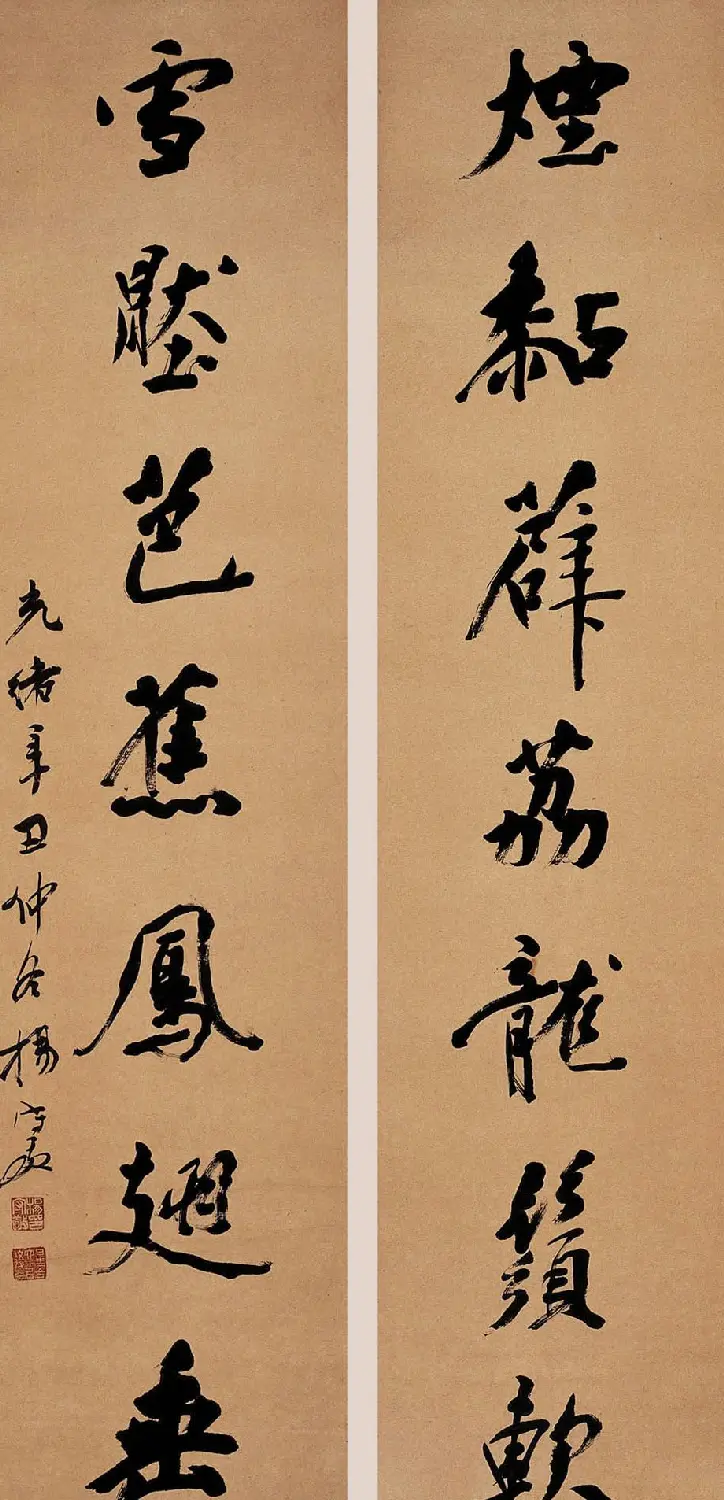 煙黏薜荔龍鬚軟
雪壓芭蕉鳳翅垂
光緒辛丑仲冬楊守敬